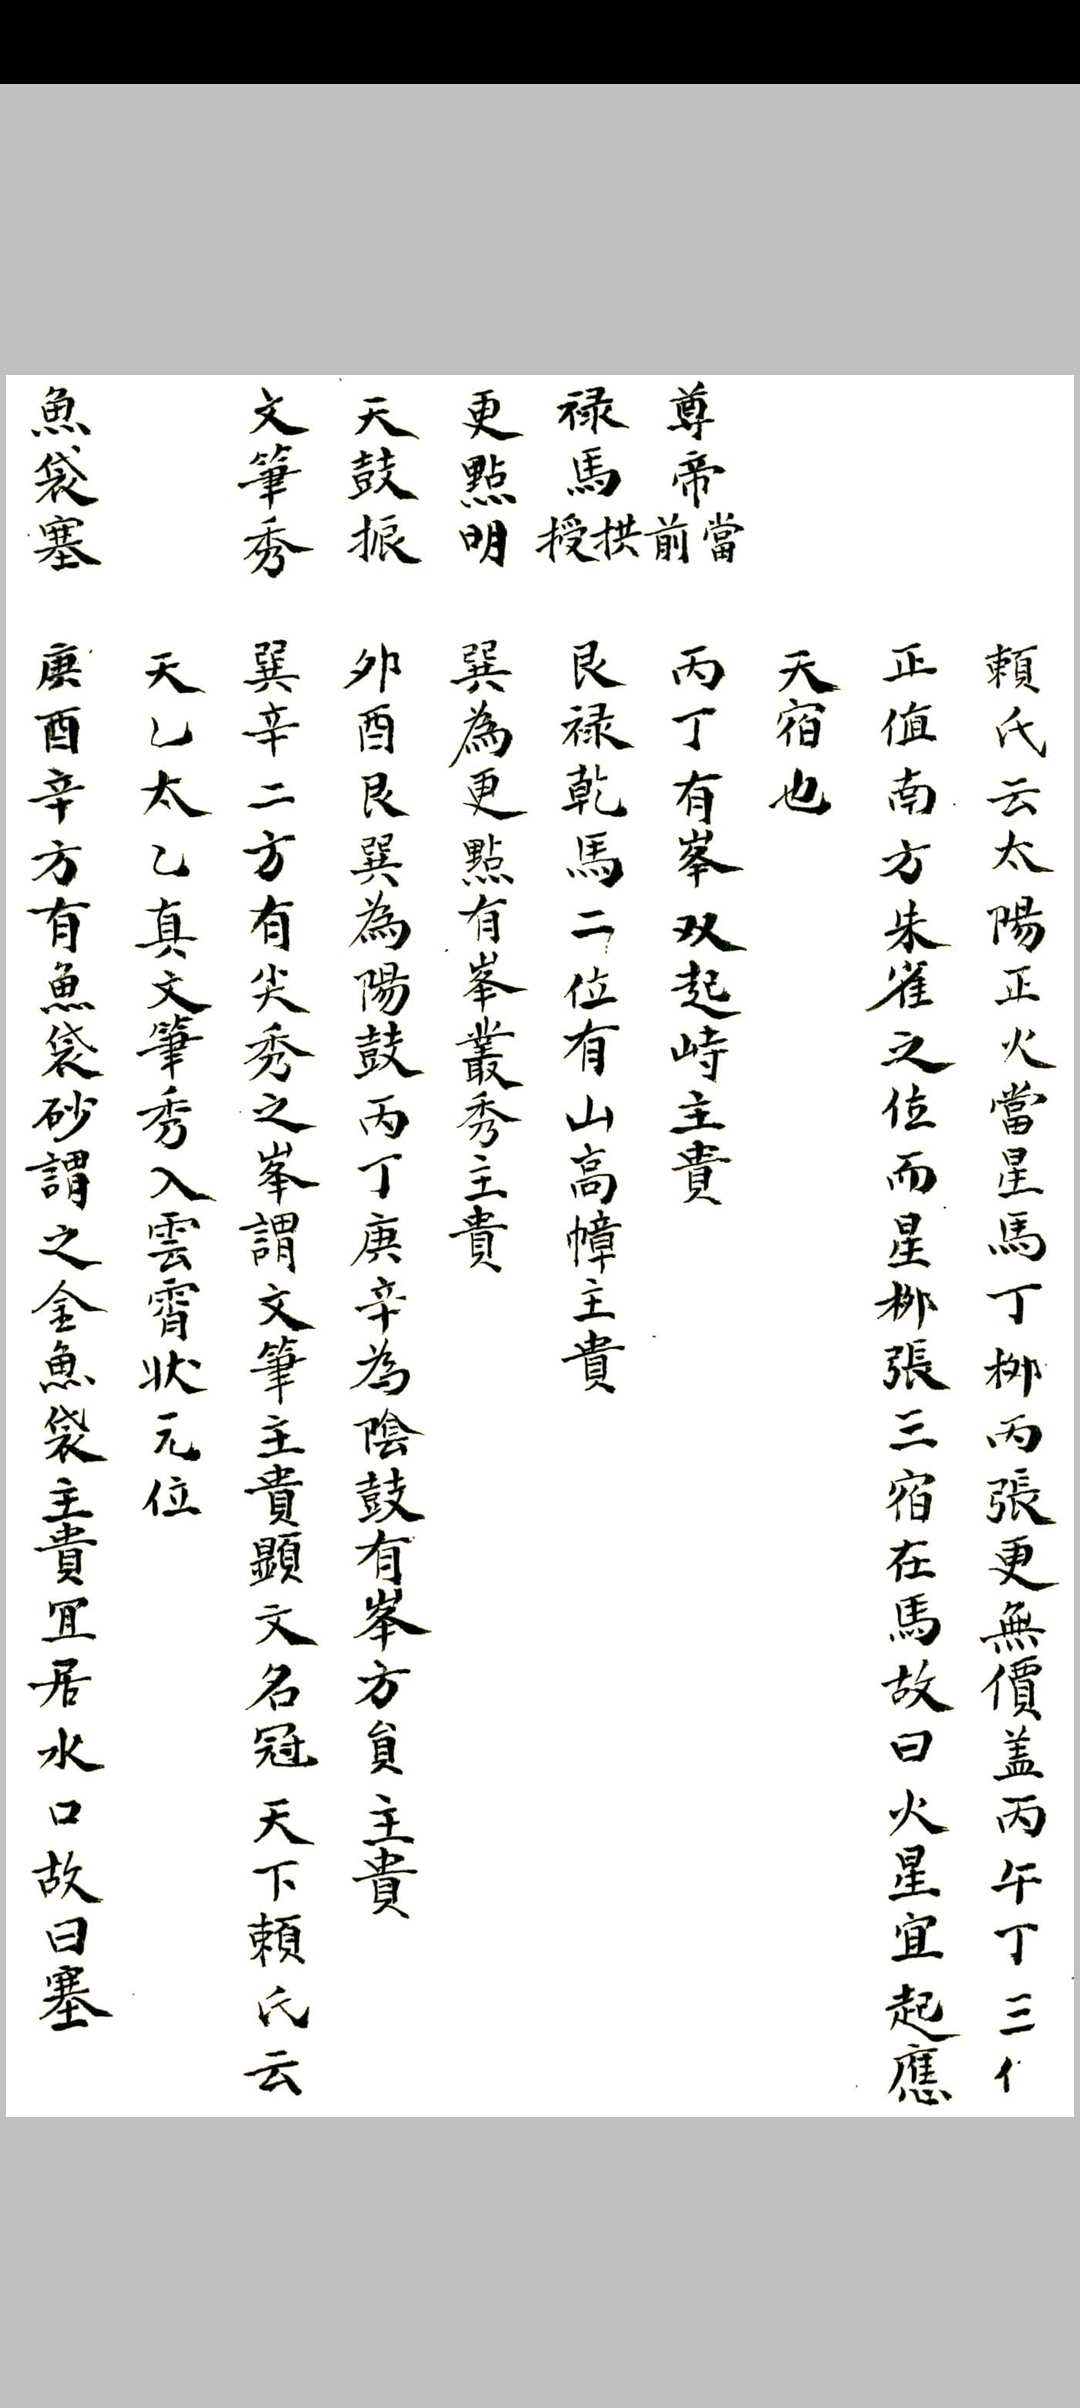 賴氏云太陽正火當星馬丁柳丙張更無價盖丙午丁三
正值南方朱雀之位而星柳張三宿在馬故曰火星宜起應
天宿也
尊帝當前
丙丁有峯双起峙主貴
禄馬拱授
艮禄乾馬二位有山高幛主貴
更點明
巽為更點有峯叢秀主貴
天鼓振
夘酉艮巽為陽鼓丙丁庚辛為陰鼓有峯方貟主貴
文筆秀
巽辛二方有尖秀之峯謂文筆主貴顕文名冠天下賴氏云
天乙太乙真文筆秀入雲霄状元位
魚袋塞
庚酉辛方有魚袋砂謂之金魚袋主貴冝居水口故曰塞